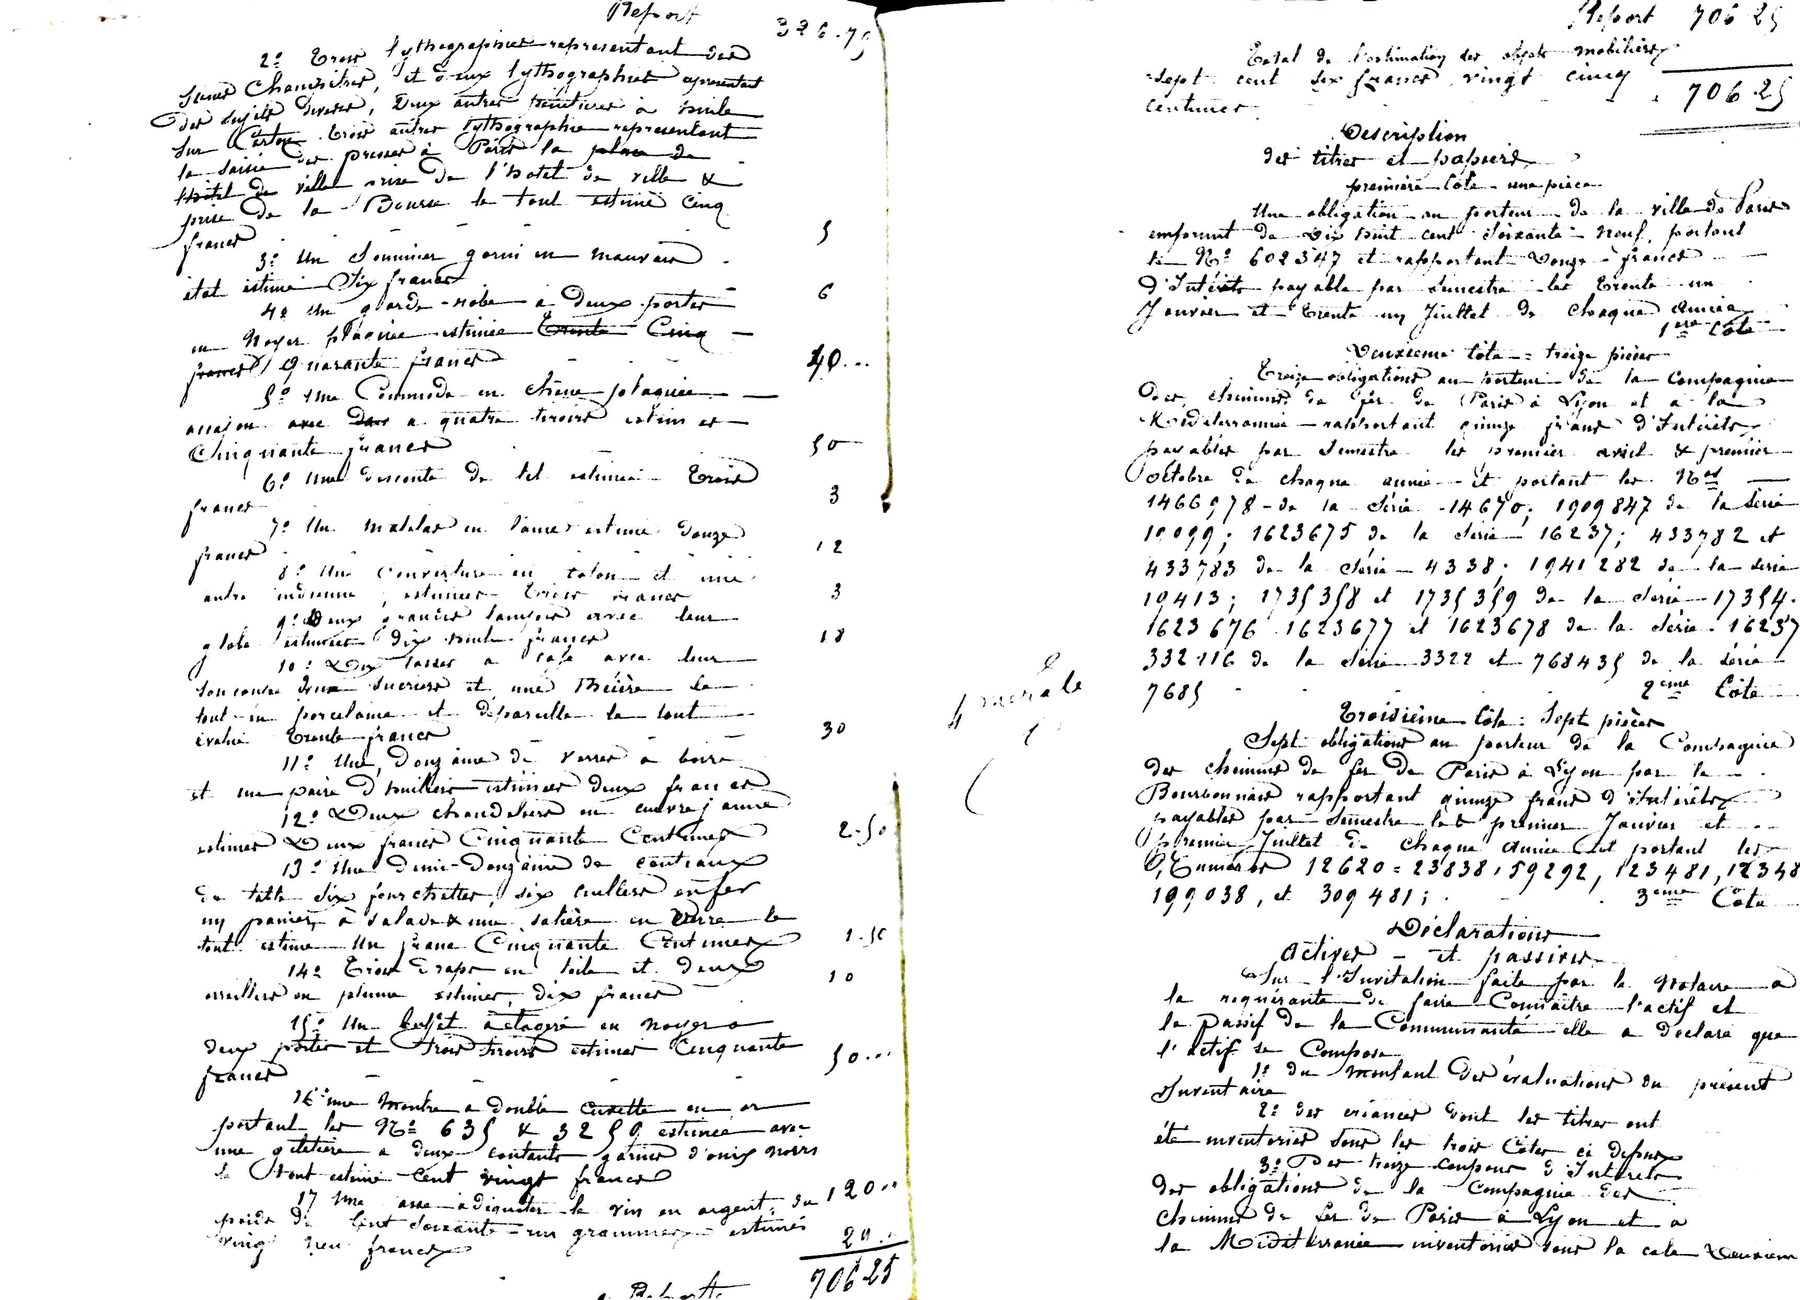 Report 326.75
2º Trois lythographies representant des
scenes Champêtres, et deux lythographies representant
des sujets divers, deux autres peintures à huile
sur Carton trois autres lythographie representant
la saisie des presses à Paris la place de
Hôtel de ville prise de l'hotel de ville &
prise de la Bourse le tout estimé Cinq
francs 5
3º Un Sommier garni en mauvais
état estimé Six francs 6
4º Un garde-robe a deux portes
en Noyer plaquée estimée Trente Cinq
francs Quarante francs 40
5º Une Commode en Chêne plaquée
acajou avec a quatre tiroirs estimée
Cinquante francs 50
6º Une descente de lit estimée Trois
francs 3
7º Un matelas en laine estimé douze
francs 12
8º Une Couverture en coton et une
autre indienne, estimées trois francs 3
9º Deux grandes lampes avec leur
globe estimées dix huit francs 18
10º Dix tasses a café avec leur
soucoupe deux sucriers et une Théière le
tout en porcelaine et déparcillé le tout
évalué trente francs 30
11º Une Douzaine de verres a boire
et une paire d'huiliers estimées deux francs
12º Deux chandeliers en cuivre jaune
estimés Deux francs Cinquante Centimes 2.50
13º Une demi-Douzaine de couteaux
de table six fourchettes, six cuillers en fer
un panier à salade & une salière en verre le
tout estimé Un franc Cinquante Centimes 1.50
14º Trois draps en toile et deux
oreillers en plume estimés, dix francs 10
15º Un buffet étagère en noyer a
deux portes et trois tiroirs estimés Cinquante
francs 50
16º une Montre a double cuvette en or
portant les Nº 635 & 3259 estimée avec
une giletière a deux coutants garnie d'onix noirs
le tout estimé Cent vingt francs 120
17 Une tasse à déguster le vin en argent, du
poids de Cent soixante-un grammes estimés
vingt neuf francs 29
a Reporter 706 25
Report 706 25
Total de l'estimation des objets mobiliers
sept cent six francs vingt cinq
centimes 706.25
Description
des titres et papiers
première Côte - une pièce
Une obligation au porteur de la ville de Paris
emprunt de Dix huit cent soixante-neuf, portant
le Nº 602347 et rapportant Douze francs
d'Intérêts payable par semestre les trente un
Janvier et trente un Juillet de chaque année
1ère Côte
Deuxieme Côte = treize pièces
Treize obligations au porteur de la Compagnie
des chemins de fer de Paris à Lyon et a la
Méditerrannée rapportant quinze francs d'Intérêts,
payables par semestre les premier avril & premier
octobre de chaque année et portant les Nos
1466978 de la série 14670; 1909847 de la série
19099; 1623675 de la série 16237; 433782 et
433783 de la série 4338; 1941282 de la série
19413; 1735358 et 1735359 de la série 17354.
1623676 1623677 et 1623678 de la série 16237
332116 de la série 3322 et 768435 de la série
7685 2eme Côte
Troisième Côte: Sept pièces
Sept obligations au porteur de la Compagnie
des chemins de fer de Paris à Lyon par le
Bourbonnais rapportant quinze francs d'Intérêts
payables par semestre les premier Janvier et
premier Juillet de chaque année et portant les
Numéros 12620 = 23838, 59292, 123481, 12348
199,038, et 309481; 3eme Côte
Déclarations
Actives et passives
Sur l'Invitation faite par le Notaire a
la requérante de faire Connaitre l'actif et
le passif de la Communauté elle a déclaré que
l'actif se Compose
1º du montant des évaluations du présent
Inventaire
2º des créances dont les titres ont
été inventoriés sous les trois Côtes ci dessus
3º Des treize coupons d'Intérêts
des obligations de la Compagnie des
chemins de fer de Paris à Lyon et a
la Méditerranée inventoriés sous la cote Deuxieme